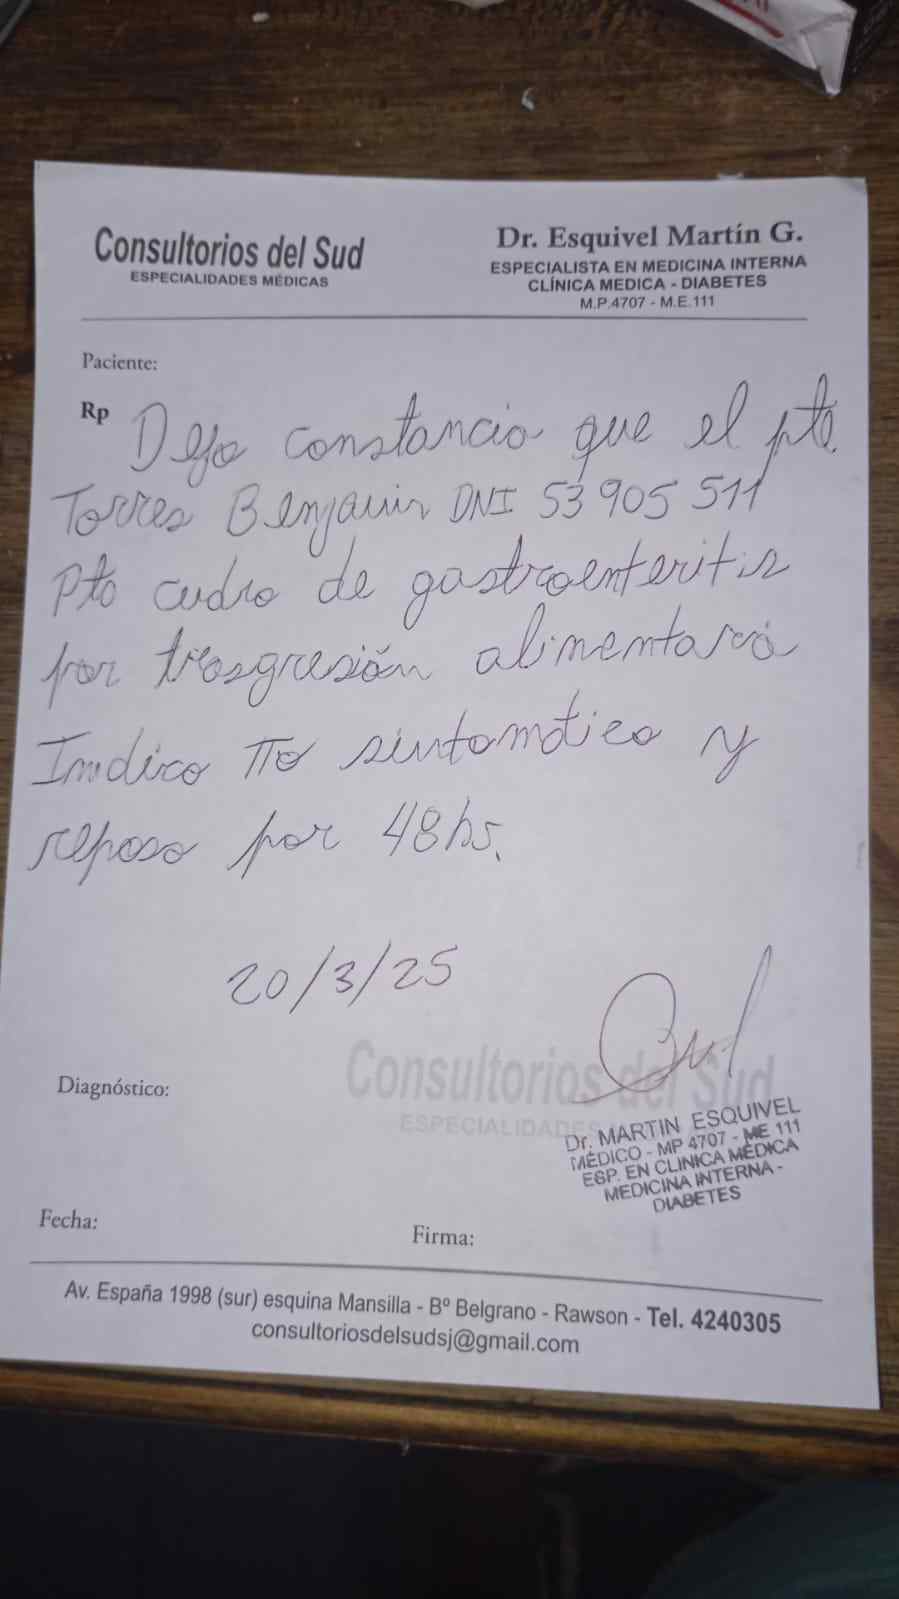 Consultorios del Sud
ESPECIALIDADES MÉDICAS
Dr. Esquivel Martín G.
ESPECIALISTA EN MEDICINA INTERNA
CLÍNICA MEDICA - DIABETES
M.P.4707 - M.E.111
Paciente:
Rp
Dejo constancia que el pte.
Torres Benjamin DNI 53 905 511
Pto cudro de gastroenteritis
por trasgresión alimentaria
Indico TTO sintomático y
reposo por 48hs.
20/3/25
Consultorios del Sud
ESPECIALIDADES
Diagnóstico:
Dr. MARTIN ESQUIVEL
MÉDICO - MP 4707 - ME 111
ESP. EN CLINICA MÉDICA
MEDICINA INTERNA -
DIABETES
Fecha:
Firma:
Av. España 1998 (sur) esquina Mansilla - Bº Belgrano - Rawson - Tel. 4240305
consultoriosdelsudsj@gmail.com